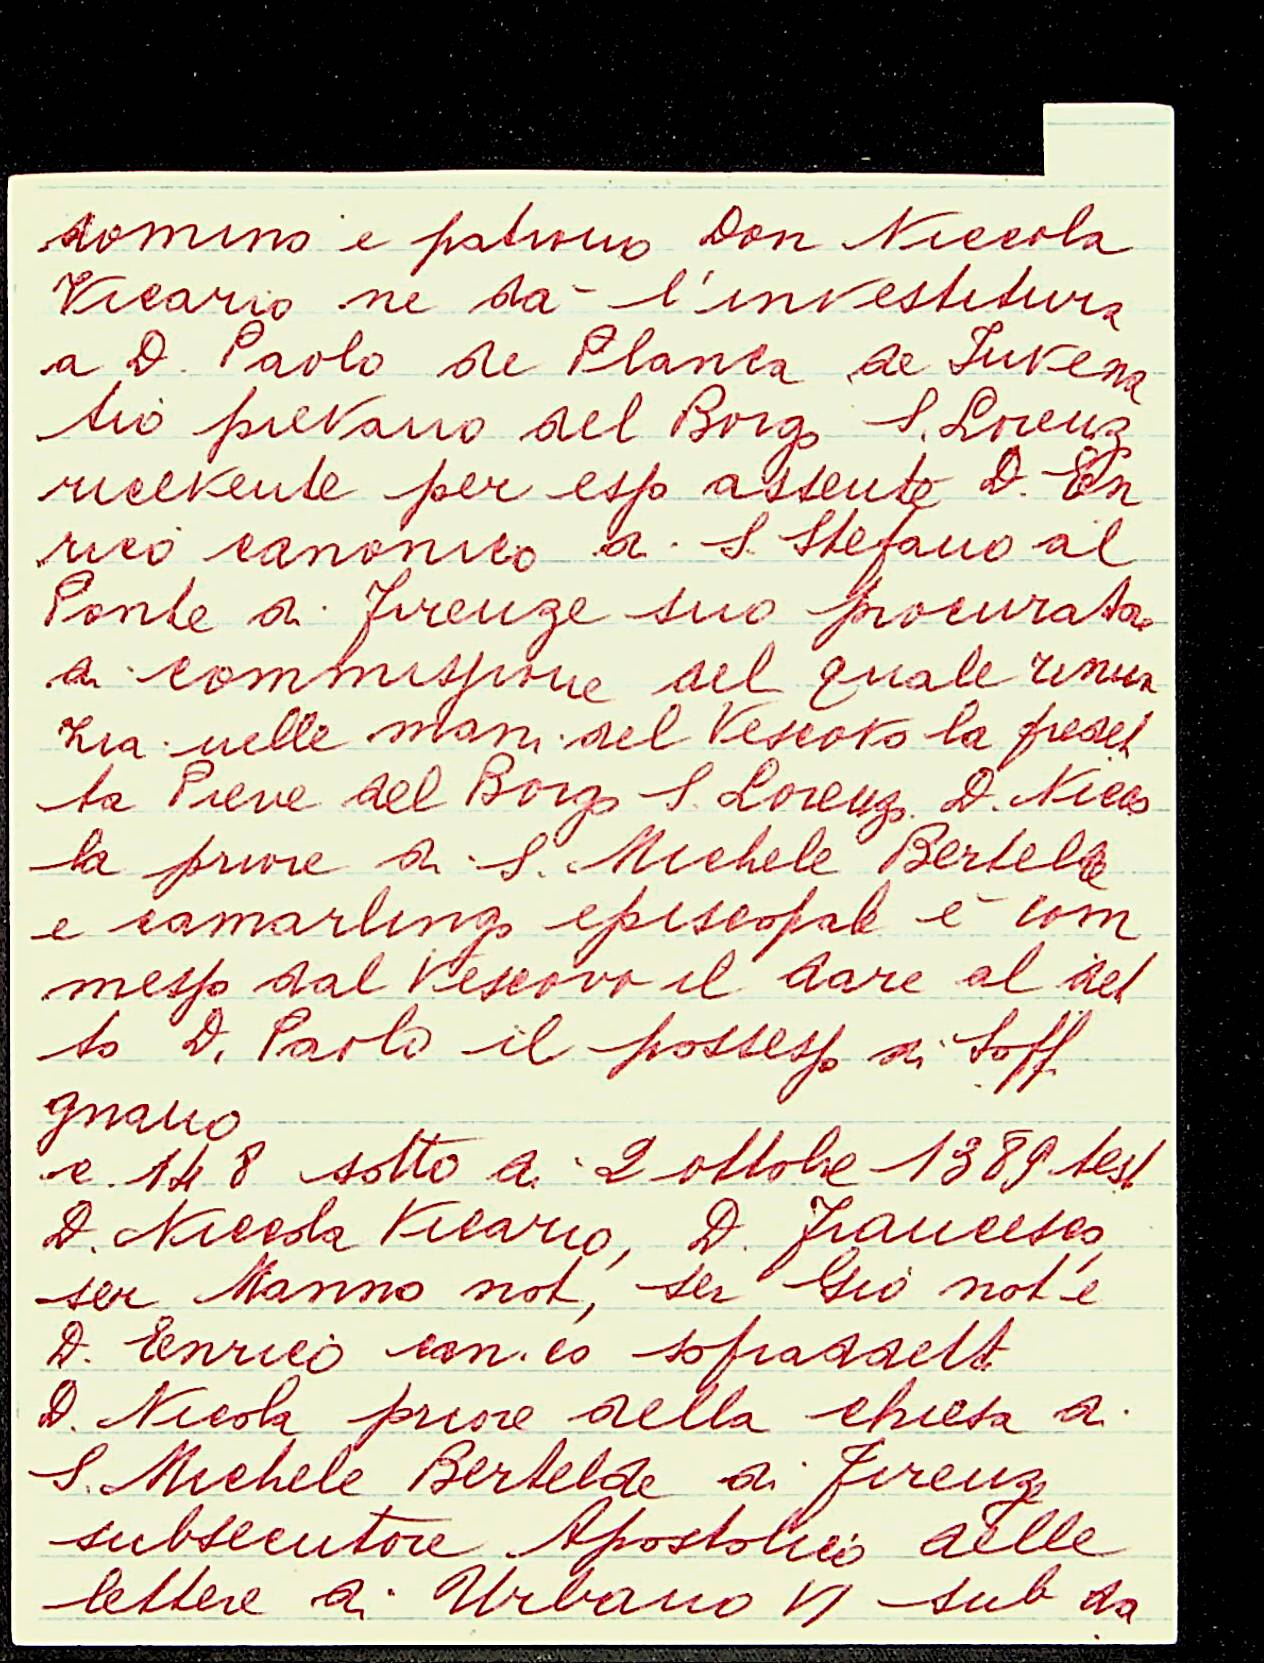 domino e patrono Don Niccola
Vicario ne dà l'investitura
a D. Paolo de Planca de Iuvena
tio pievano del Borgo S. Lorenzo
ricevente per esso assente D. En
rico canonico di S. Stefano al
Ponte di Firenze suo procurator
di commissione del quale rinun
zia nelle mani del Vescovo la predet
ta Pieve del Borgo S. Lorenzo. D. Nicco
la priore di S. Michele Bertelde
e camarlingo episcopale è com
messo dal Vescovo il dare al det
to D. Paolo il possesso di Soff
gnano
c. 148 sotto di 2 ottobre 1389 test
D. Niccola Vicario, D. Francesco,
ser Nanno not, ser Gio not e
D. Enrico can.co sopraddett
D. Nicola priore della chiesa di
S. Michele Bertelde di Firenze
subsecutore Apostolico delle
lettere di Urbano VI sub da